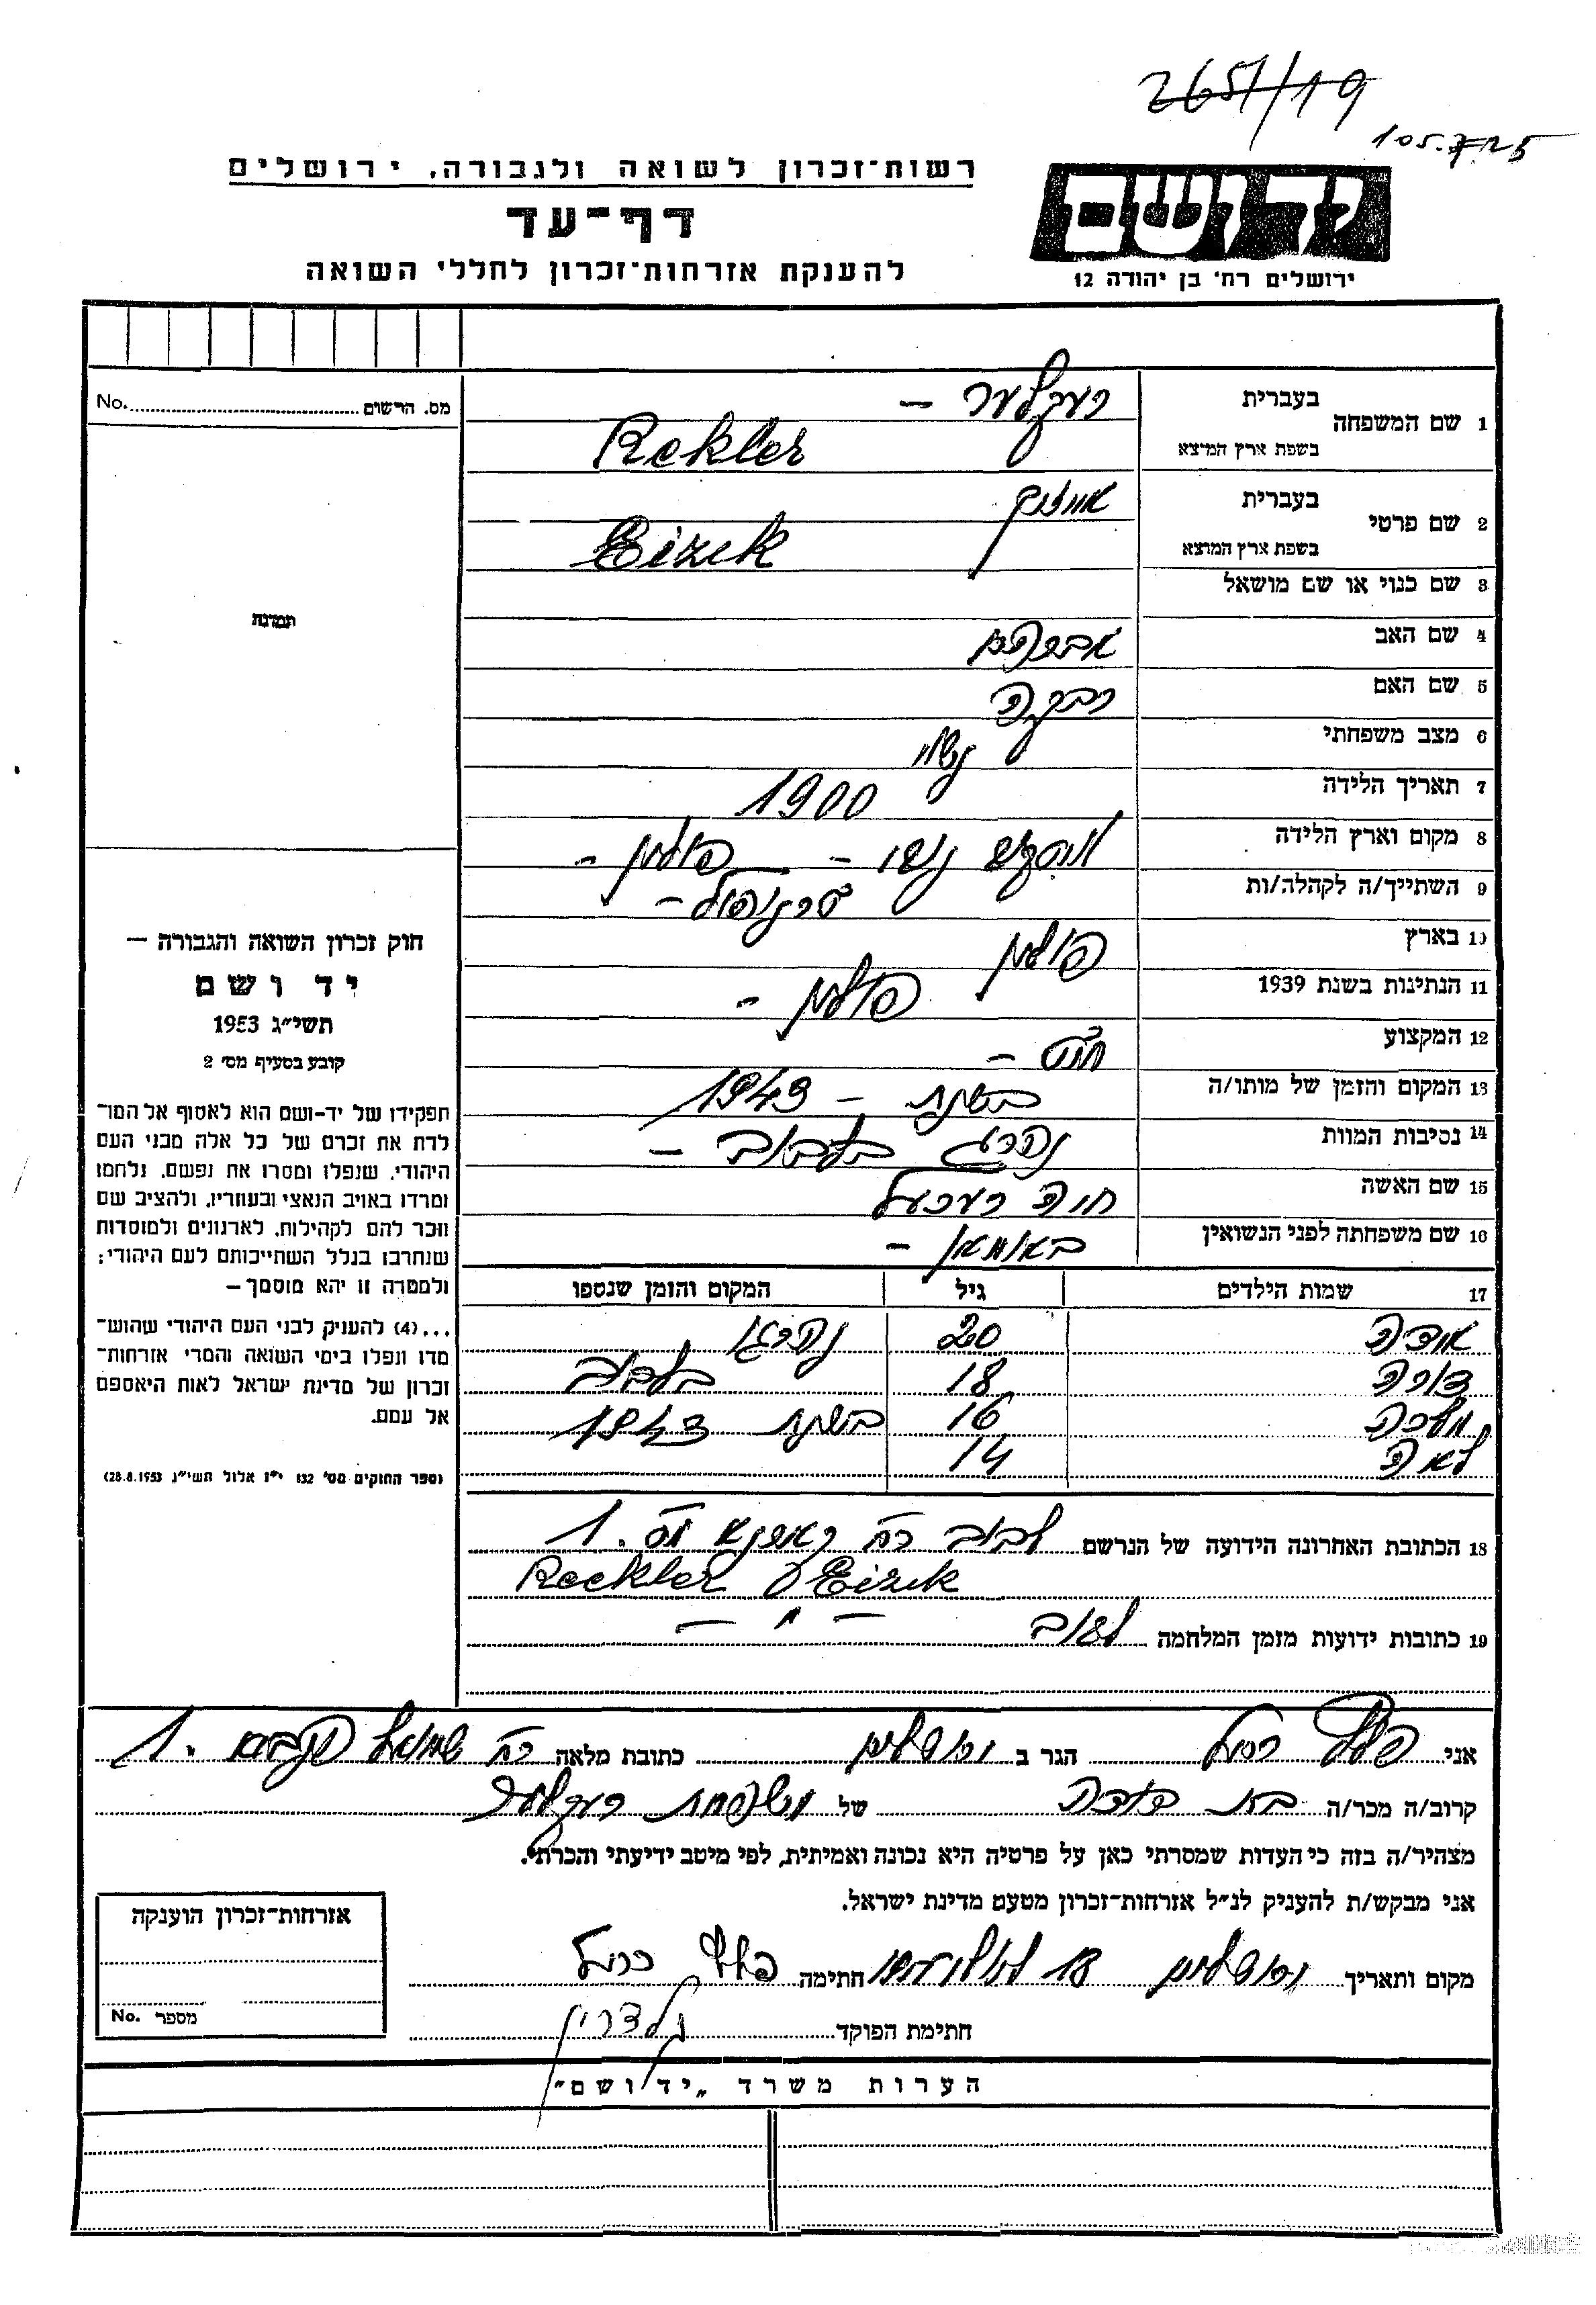 265//19
105.7.25
רשות־זכרון לשואה ולגבורה, ירושלים
דף־עד
להענקת אזרחות־זכרון לחללי השואה
יד ושם
ירושלים רח' בן יהודה 12
מס. הרשום No.
תמונה
1 שם המשפחה בעברית רעקלער –
בשפת ארץ המוצא Rekler
2 שם פרטי בעברית אייזיק
בשפת ארץ המוצא Eizik
3 שם כנוי או שם מושאל
4 שם האב אברהם
5 שם האם רבקה
6 מצב משפחתי נשוי
7 תאריך הלידה 1900
8 מקום וארץ הלידה – פולין –
9 השתייך/ה לקהלה/ות טרנופול –
10 בארץ פולין
11 הנתינות בשנת 1939 פולין –
12 המקצוע –
13 המקום והזמן של מותו/ה בשנת – 1943
14 נסיבות המוות נהרג בלבוב –
15 שם האשה חוה רעכעל
16 שם משפחתה לפני הנשואין באומאן –
17 שמות הילדים גיל המקום והזמן שנספו
20 נהרגו
דורה 18 בלבוב
מלכה 16 בשנת 1943
לאה 14
18 הכתובת האחרונה הידועה של הנרשם לבוב רח' מס. 1
Reckler Eizik
19 כתובות ידועות מזמן המלחמה לבוב – " –
חוק זכרון השואה והגבורה –
יד ושם
תשי"ג 1953
קובע בסעיף מס' 2
תפקידו של יד-ושם הוא לאסוף אל המו־
לדת את זכרם של כל אלה מבני העם
היהודי, שנפלו ומסרו את נפשם, נלחמו
ומרדו באויב הנאצי ובעוזריו, ולהציב שם
וזכר להם לקהילות, לארגונים ולמוסדות
שנחרבו בגלל השתייכותם לעם היהודי;
ולמטרה זו יהא מוסמך –
...(4) להעניק לבני העם היהודי שהוש־
מדו ונפלו בימי השואה והמרי אזרחות־
זכרון של מדינת ישראל לאות היאספם
אל עמם.
(ספר החוקים מס' 132 י"ז אלול תשי"ג 28.8.1953)
אני רחל הגר ב ירושלים כתובת מלאה רח' שמואל הנביא 1.
קרוב/ה מכר/ה בת דודה של משפחת רעקלער
מצהיר/ה בזה כי העדות שמסרתי כאן על פרטיה היא נכונה ואמיתית, לפי מיטב ידיעתי והכרתי.
אני מבקש/ת להעניק לנ"ל אזרחות־זכרון מטעם מדינת ישראל.
מקום ותאריך ירושלים 18 חתימה רחל
חתימת הפוקד
אזרחות־זכרון הוענקה
מספר No.
הערות משרד "יד ושם"